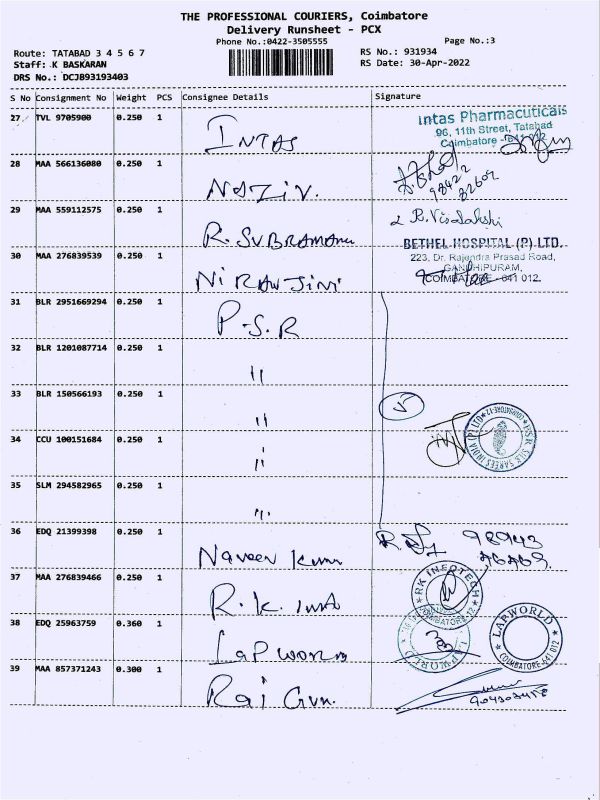 THE PROFESSIONAL COURIERS, Coimbatore
Delivery Runsheet - PCX
Phone No.:0422-3505555
Page No.:3
Route: TATABAD 3 4 5 6 7
RS No.: 931934
Staff: K BASKARAN
RS Date: 30-Apr-2022
DRS No.: DCJB93193403
S No Consignment No Weight PCS Consignee Details Signature
27 TVL 9705900 0.250 1 INTAS
Intas Pharmaceuticals
96, 11th Street, Tatabad
Coimbatore
28 MAA 566136080 0.250 1 NAZIV.
29 MAA 559112575 0.250 1 R. SUBRAMANI R. Visalakshi
30 MAA 276839539 0.250 1 NIRANJINI
BETHEL HOSPITAL (P) LTD.
223, Dr. Rajendra Prasad Road,
GANDHIPURAM,
COIMBATORE - 641 012.
31 BLR 2951669294 0.250 1 P.S.R
32 BLR 1201087714 0.250 1 "
33 BLR 150566193 0.250 1 " 5
34 CCU 100151684 0.250 1 "
P.S.R. SILK SAREES INDIA (P) LTD COIMBATORE-12
35 SLM 294582965 0.250 1 "
36 EDQ 21399398 0.250 1 Naveen Kumar 98943
37 MAA 276839466 0.250 1 R.K. Info
RK INFOTECH COIMBATORE-12
38 EDQ 25963759 0.360 1 Lap World
LAPWORLD COIMBATORE-641 012
39 MAA 857371243 0.300 1 Raj Gun.